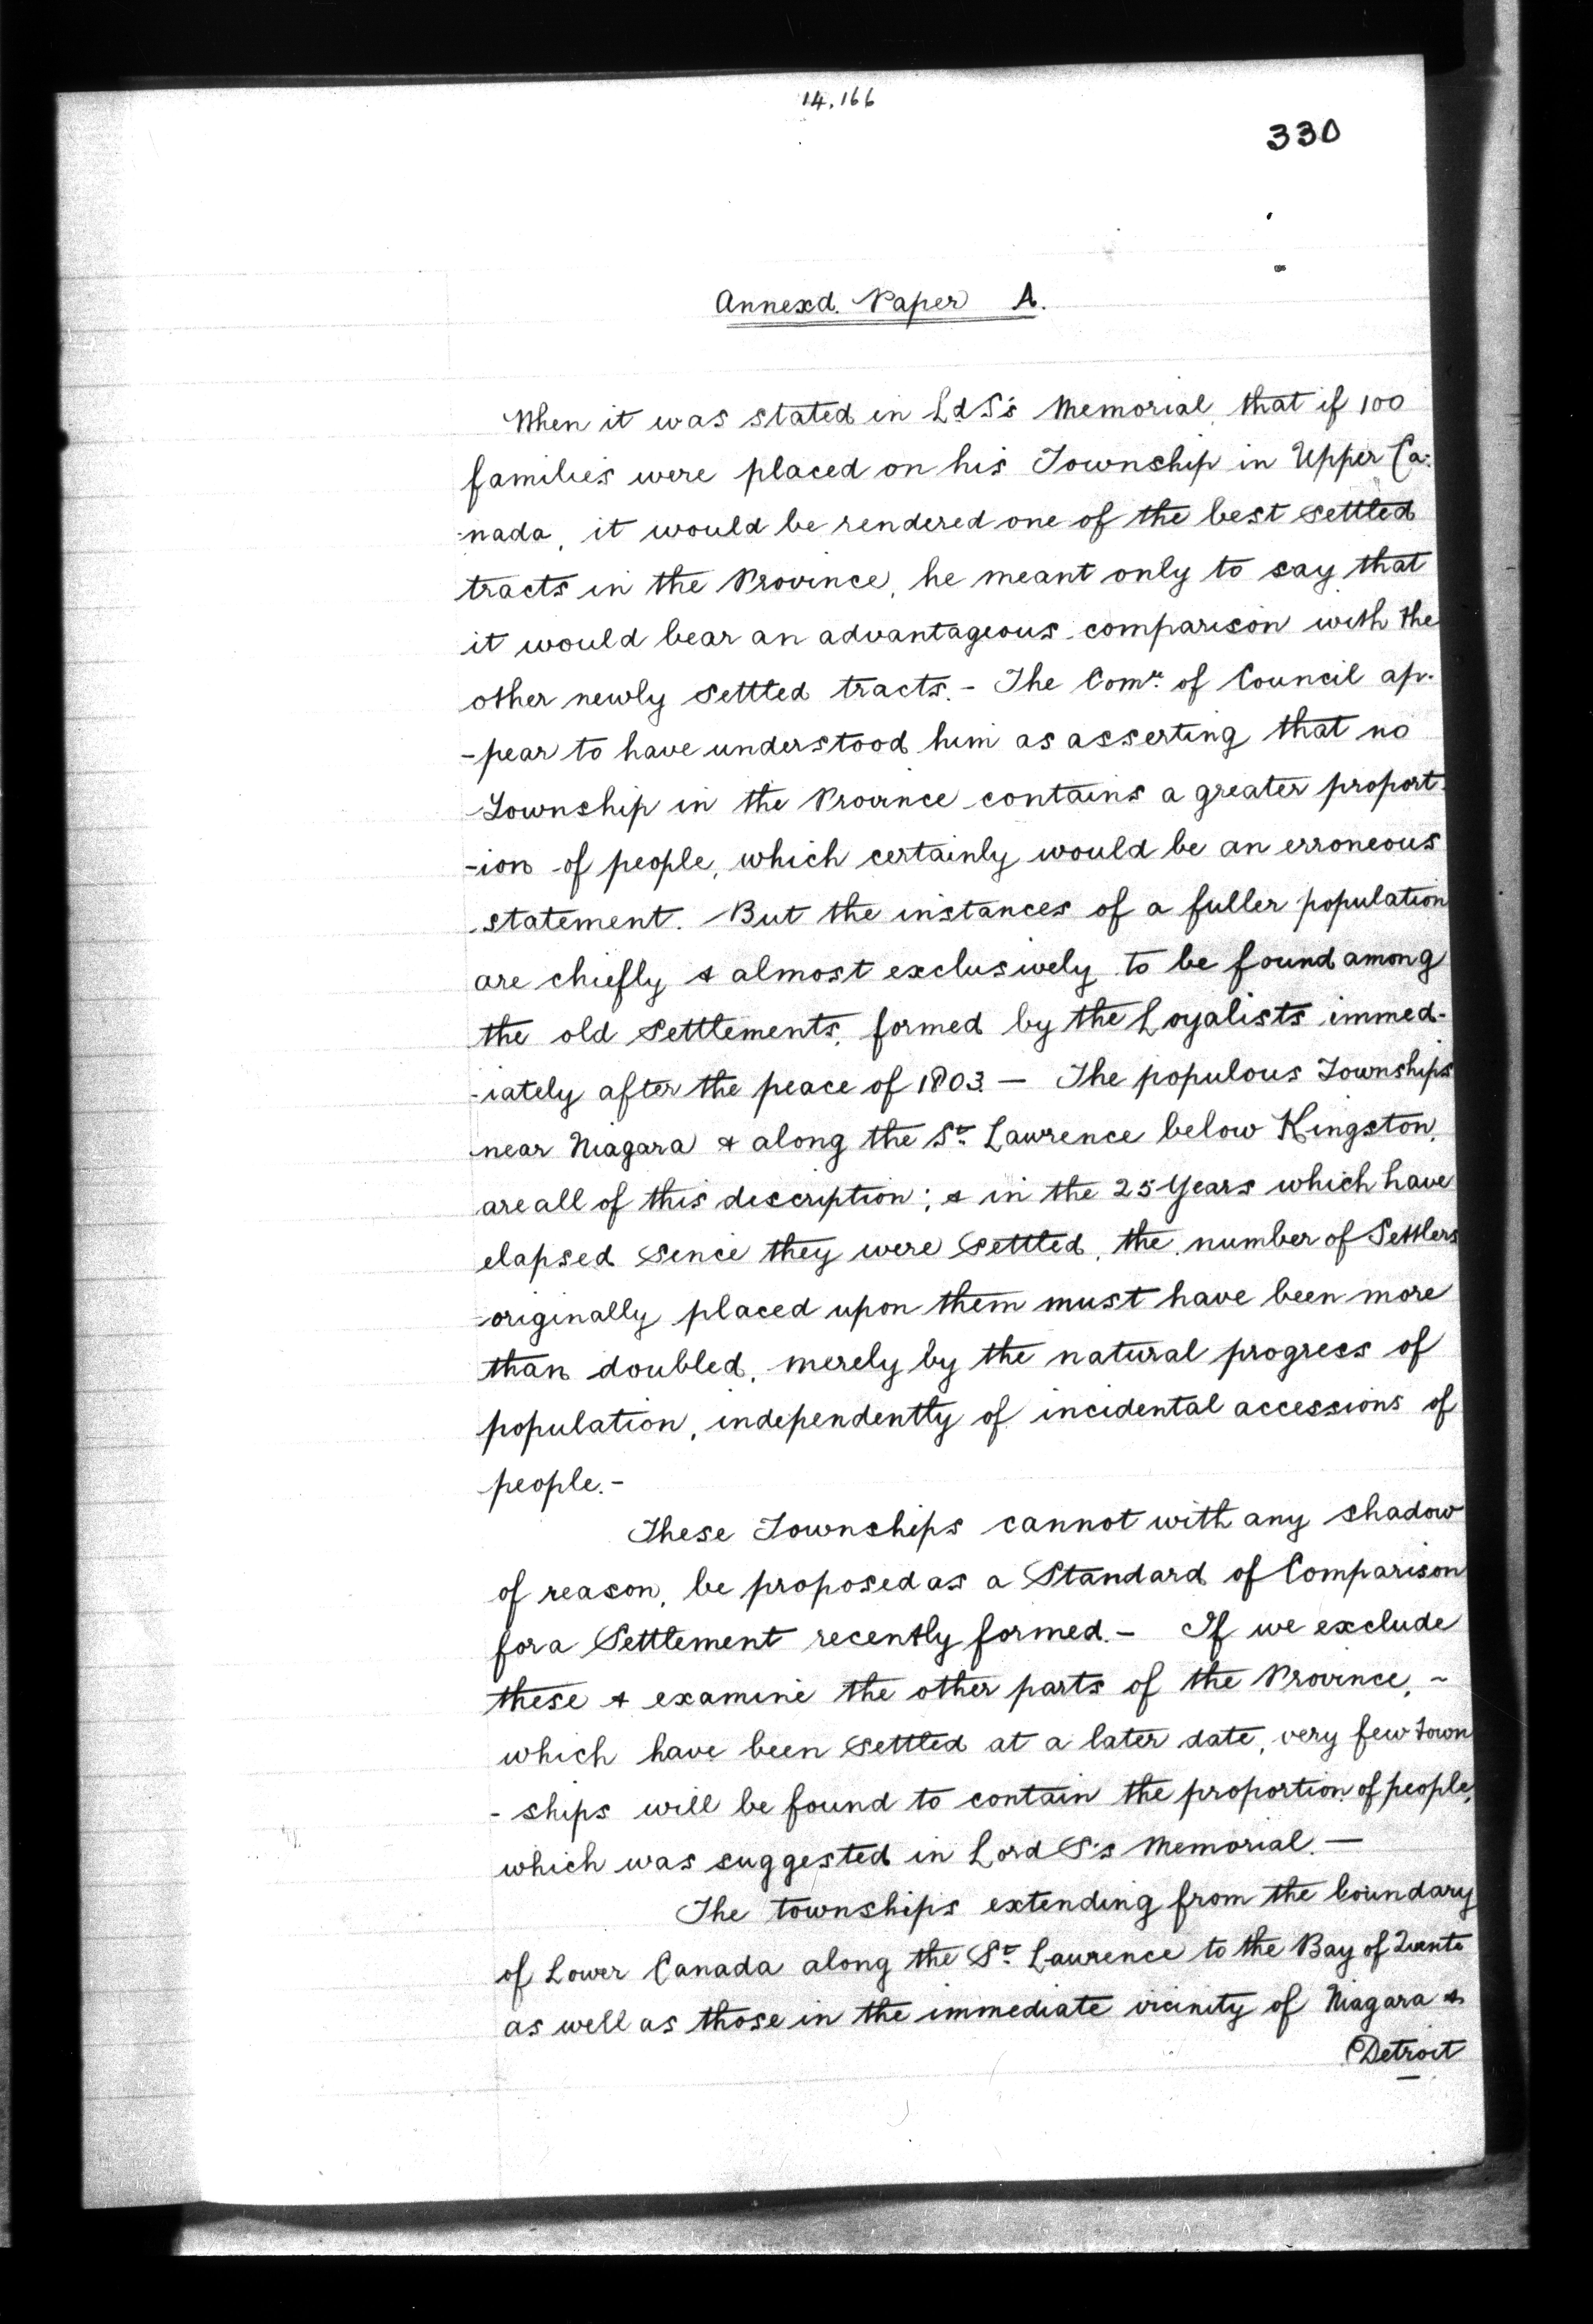 14.166
330
Annexd. Paper A.
When it was stated in Ld S's Memorial, that if 100
families were placed on his Township in Upper Ca-
-nada, it would be rendered one of the best settled
tracts in the Province, he meant only to say that
it would bear an advantageous comparison with the
other newly settled tracts. - The Comee. of Council ap-
-pear to have understood him as asserting that no
Township in the Province contains a greater proport-
-ion of people, which certainly would be an erroneous
statement. But the instances of a fuller population
are chiefly & almost exclusively to be found among
the old Settlements, formed by the Loyalists immed-
-iately after the peace of 1803 — The populous Townships
near Niagara & along the St. Lawrence below Kingston,
are all of this discription; & in the 25 Years which have
elapsed since they were settled, the number of Settlers
originally placed upon them must have been more
than doubled, merely by the natural progress of
population, independently of incidental accessions of
people. -
These Townships cannot with any shadow
of reason, be proposed as a Standard of Comparison
for a Settlement recently formed. - If we exclude
these & examine the other parts of the Province, -
which have been settled at a later date, very few town
- ships will be found to contain the proportion of people,
which was suggested in Lord S's Memorial. —
The townships extending from the boundary
of Lower Canada along the St. Lawrence to the Bay of Quente
as well as those in the immediate vicinity of Niagara &
Detroit